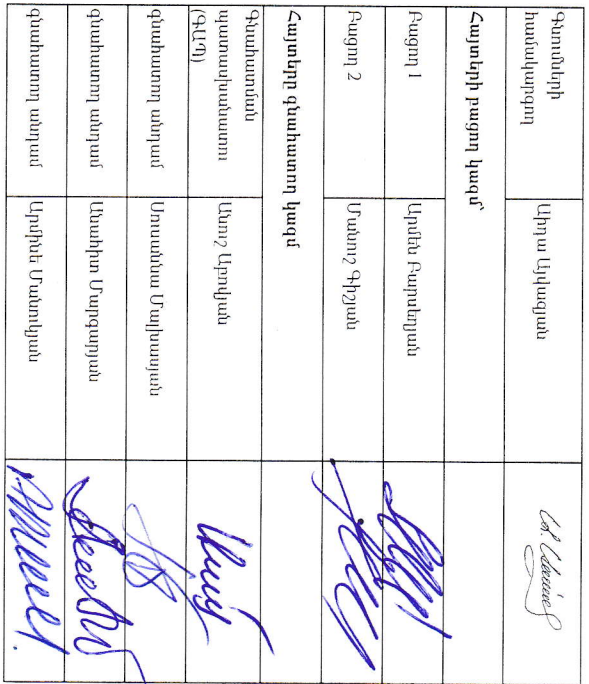 Գնումների
համակարգող
Արդա Այվազյան
Հայտերի բացող կազմ՝
Բացող 1
Արմեն Բարսեղյան
Բացող 2
Մանուշ Գիշյան
Հայտերը գնահատող կազմ
Գնահատման
պատասխանատու
(ԳԱՊ)
Անուշ Աբովյան
գնահատող անդամ
Սուսաննա Մալխասյան
գնահատող անդամ
Անահիտ Մարգարյան
գնահատող անդամ
Արմինե Մանուկյան